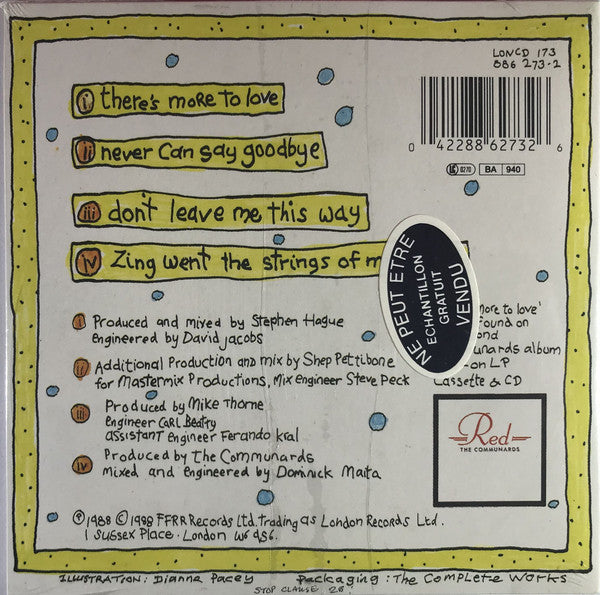 LONCD 173
886 273-2
i there's more to love
ii never can say goodbye
iii don't leave me this way
iv Zing went the strings of m
0 42288 62732 6
LC 0270 BA 940
NE PEUT ETRE
ECHANTILLON
GRATUIT
VENDU
i Produced and mixed by Stephen Hague
engineered by David Jacobs
ii Additional Production and mix by Shep Pettibone
for Mastermix Productions, Mix engineer Steve Peck
iii Produced by Mike Thorne
engineer Carl Beatty
assistant engineer Ferando Kral
iv Produced by the Communards
mixed and engineered by Dominick Maita
more to love'
found on
ond
munards album
on LP
Cassette & CD
Red
THE COMMUNARDS
℗ 1988 © 1988 FFRR Records Ltd. trading as London Records Ltd.
1 Sussex Place. London W6 9SG.
ILLUSTRATION: Dianna Pacey Packaging: The Complete Works
STOP CLAUSE 28